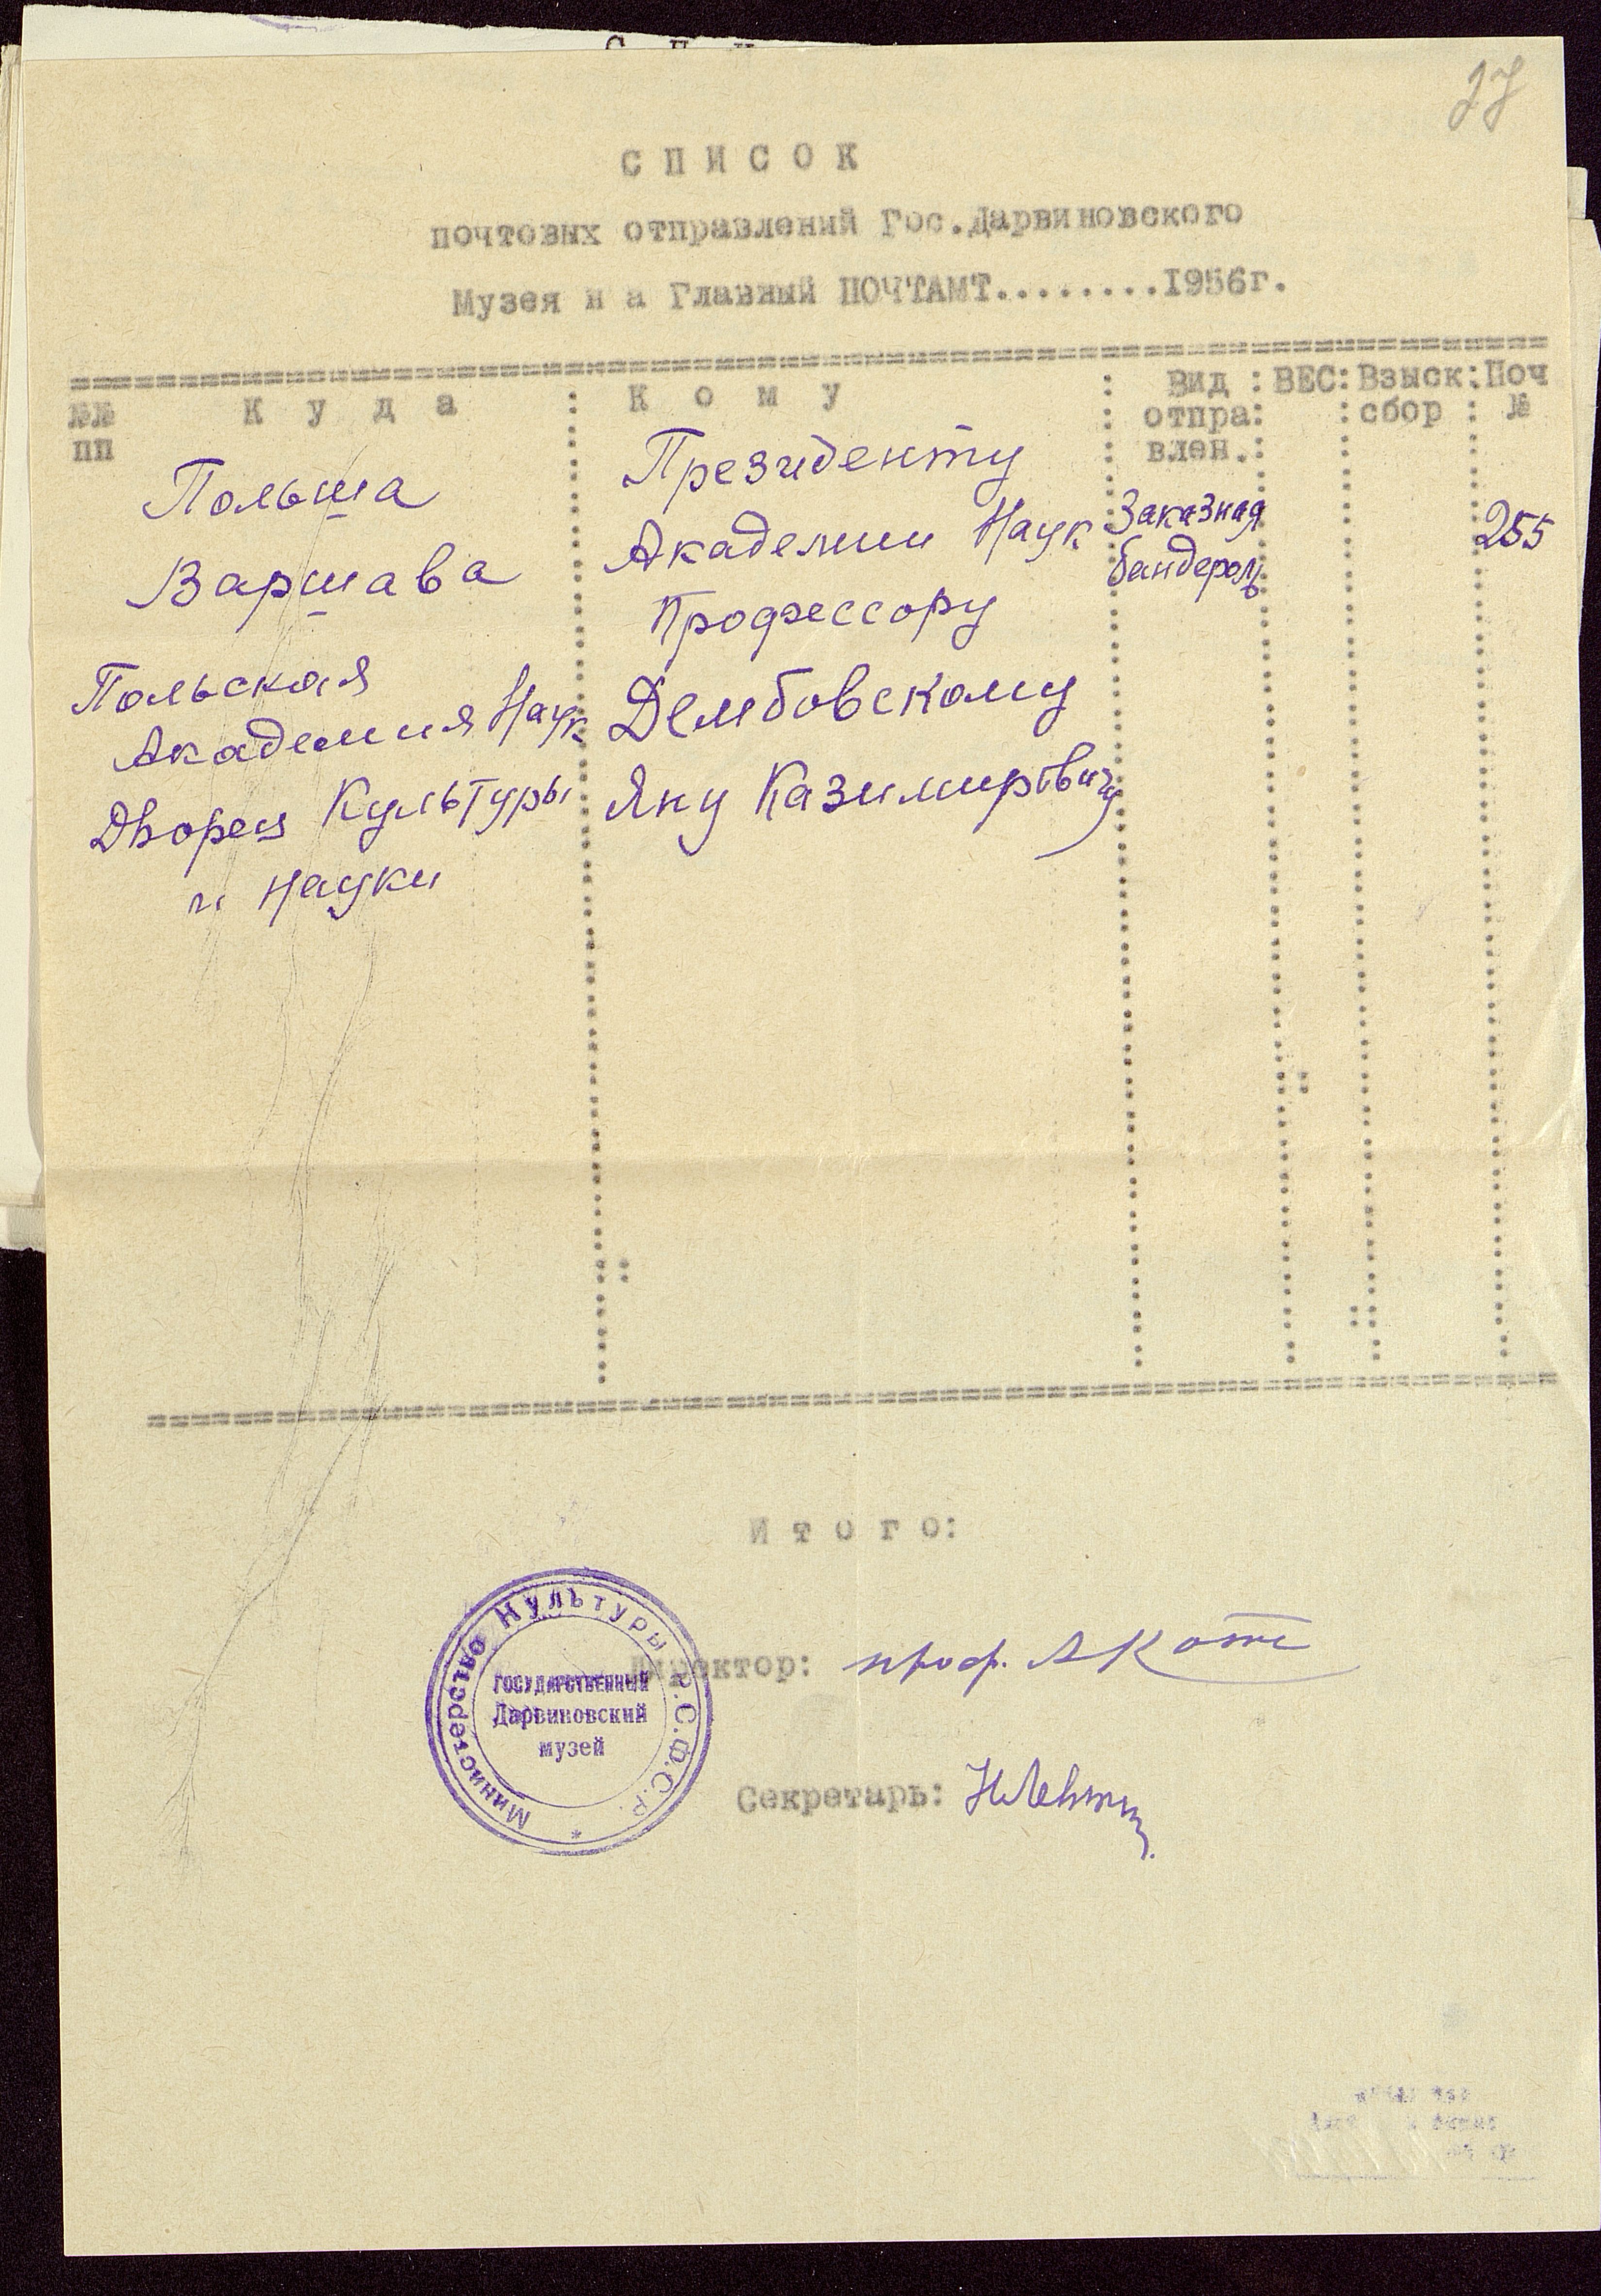 27
С П И С О К
почтовых отправлений Гос.Дарвиновского
Музея н а Главный ПОЧТАМТ........1956г.
№№ К у д а : К о м у : Вид : ВЕС: Взыск: Поч
пп : отпра: : сбор : №
влен.:
Польша
Варшава
Польская
Академия Наук
Дворец Культуры
и Науки
Президенту
Академии Наук
Профессору
Дембовскому
Яну Казимировичу
Заказная
бандероль
255
И т о г о:
Директор: проф. А Котс
Секретарь:
Министерство Культуры Р.С.Ф.С.Р. *
ГОСУДАРСТВЕННЫЙ
Дарвиновский
музей